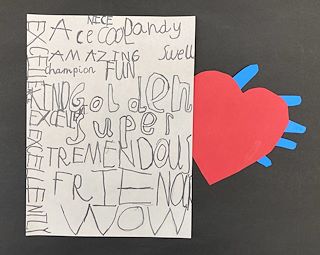 NICE
Ace COOL Dandy
AMAZING Swell
champion FUN
KIND Golden
super
TREMENDOUS
FRIEND
WOW
EXCELLENTLY